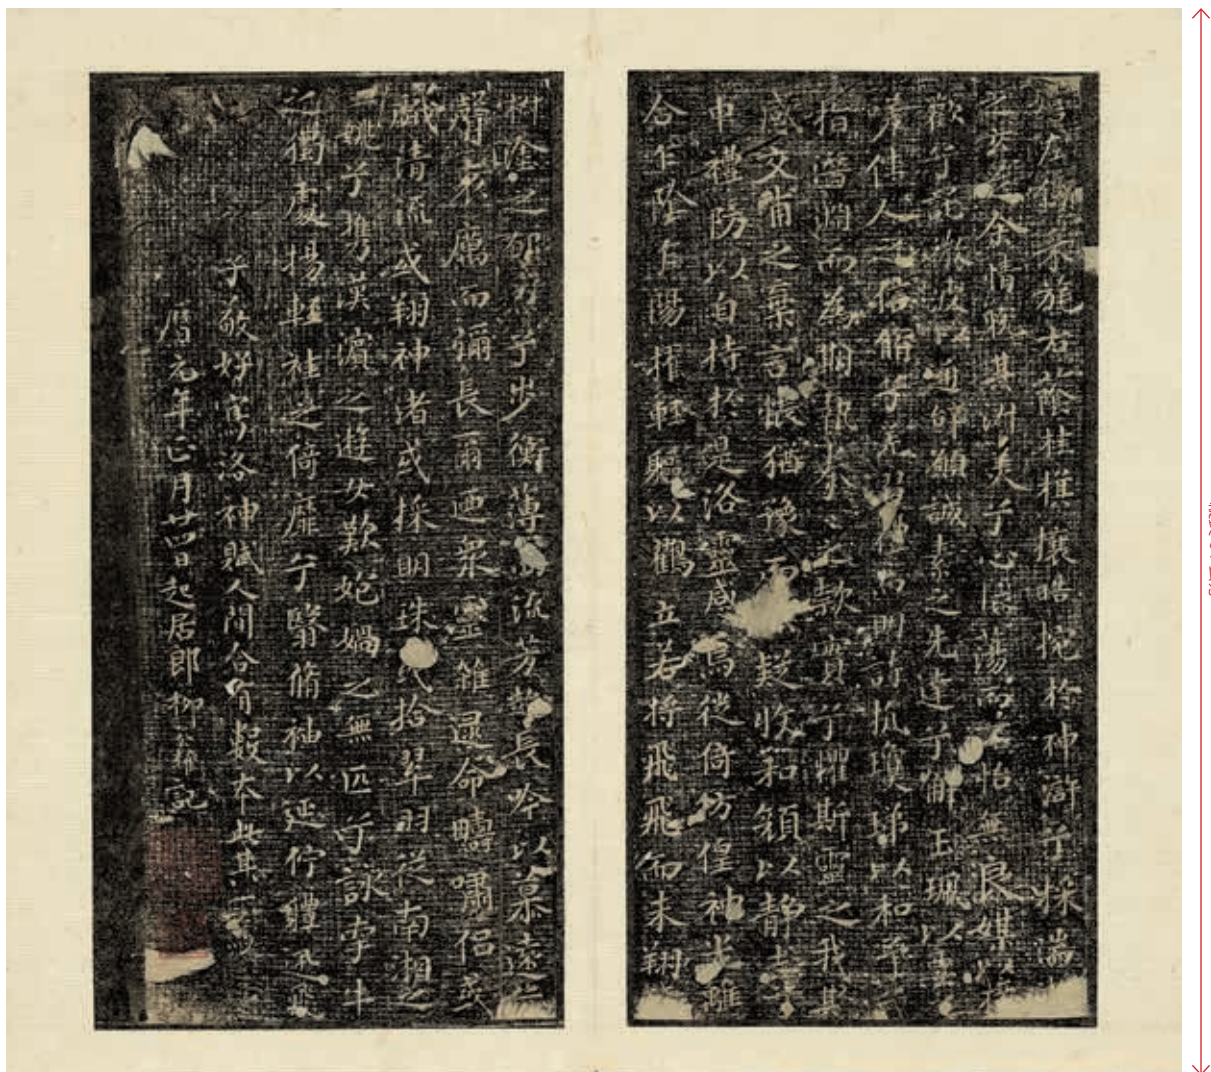 左倚采旄右蔭桂旗攘皓捥於神滸兮採湍
之玄芝余情悅其淑美兮心振蕩而不怡無良媒以接
歡兮託微波以通辭願誠素之先達兮解玉珮以要
嗟佳人之信脩兮羌習禮而明詩抗瓊珶以和予兮
指潛淵而為期執拳之款實兮懼斯靈之我欺
感交甫之棄言悵猶豫而疑收和顏以靜志
申禮防以自持於是洛靈感焉徙倚仿偟神光離
合乍陰乍陽擢輕軀以鶴立若將飛飛而未翔
椒塗之郁烈兮步衡薄而流芳超長吟以慕遠兮
聲哀厲而彌長爾迺衆靈雜遝命疇嘯侶或
戲清流或翔神渚或採明珠或拾翠羽從南湘之
姚兮攜漢濱之遊女歎匏媧之無匹兮詠牽牛
之獨處揚輕袿之倚靡兮翳脩袖以延佇體迅飛
子敬好寫洛神賦人間合有數本此其一焉
曆元年正月廿四日起居郎柳公權記